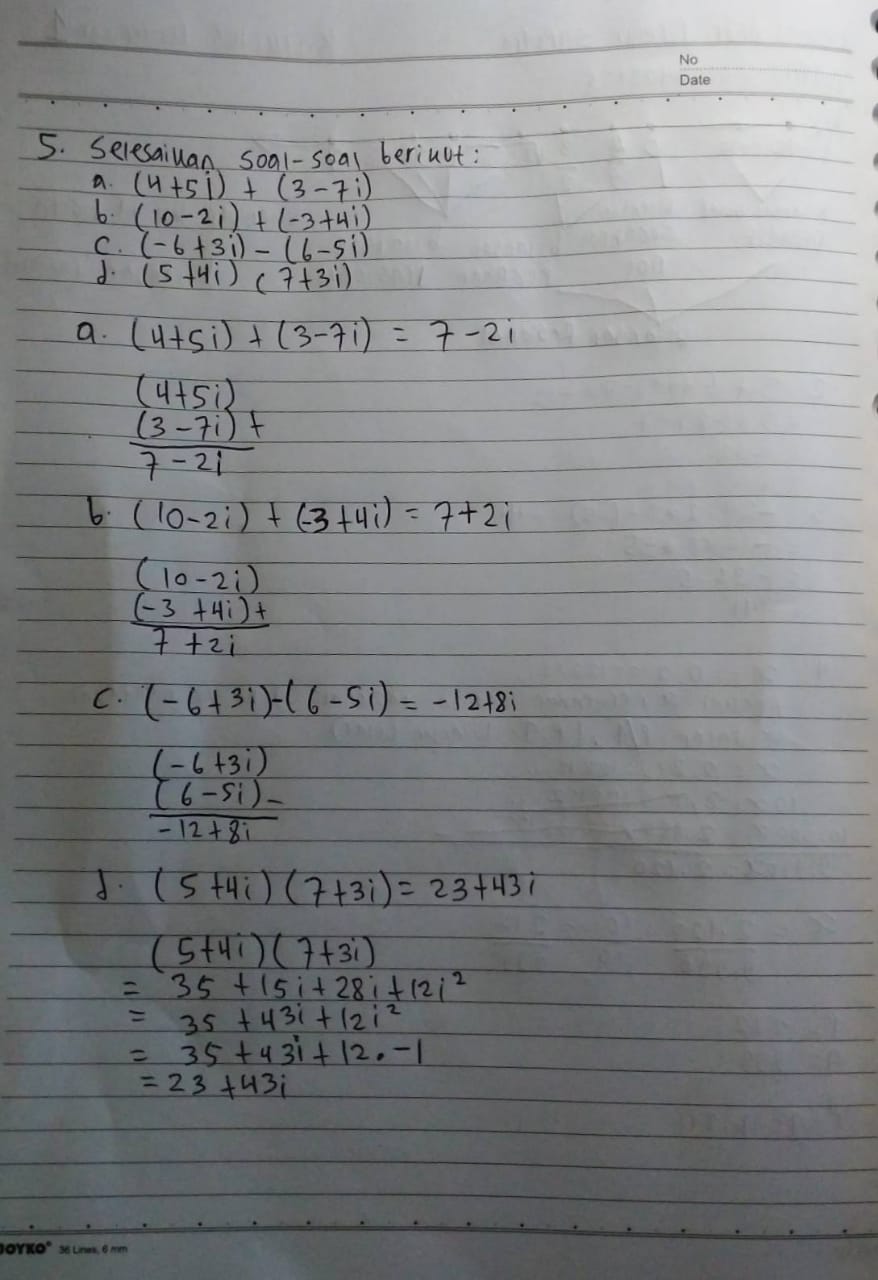 No
Date
5. Selesaikan soal-soal berikut:
a. (4+5i) + (3-7i)
b. (10-2i) + (-3+4i)
c. (-6+3i) - (6-5i)
d. (5+4i) (7+3i)
a. (4+5i) + (3-7i) = 7-2i
(4+5i)
(3-7i) +
7-2i
b. (10-2i) + (-3+4i) = 7+2i
(10-2i)
(-3 +4i) +
7 +2i
c. (-6+3i)-(6-5i) = -12+8i
(-6+3i)
(6-5i) -
-12+8i
d. (5+4i) (7+3i) = 23+43i
(5+4i) (7+3i)
= 35 +15i+28i+12i²
= 35 +43i+12i²
= 35 +43i+12.-1
= 23 +43i
JOYKO® 36 Lines, 6 mm